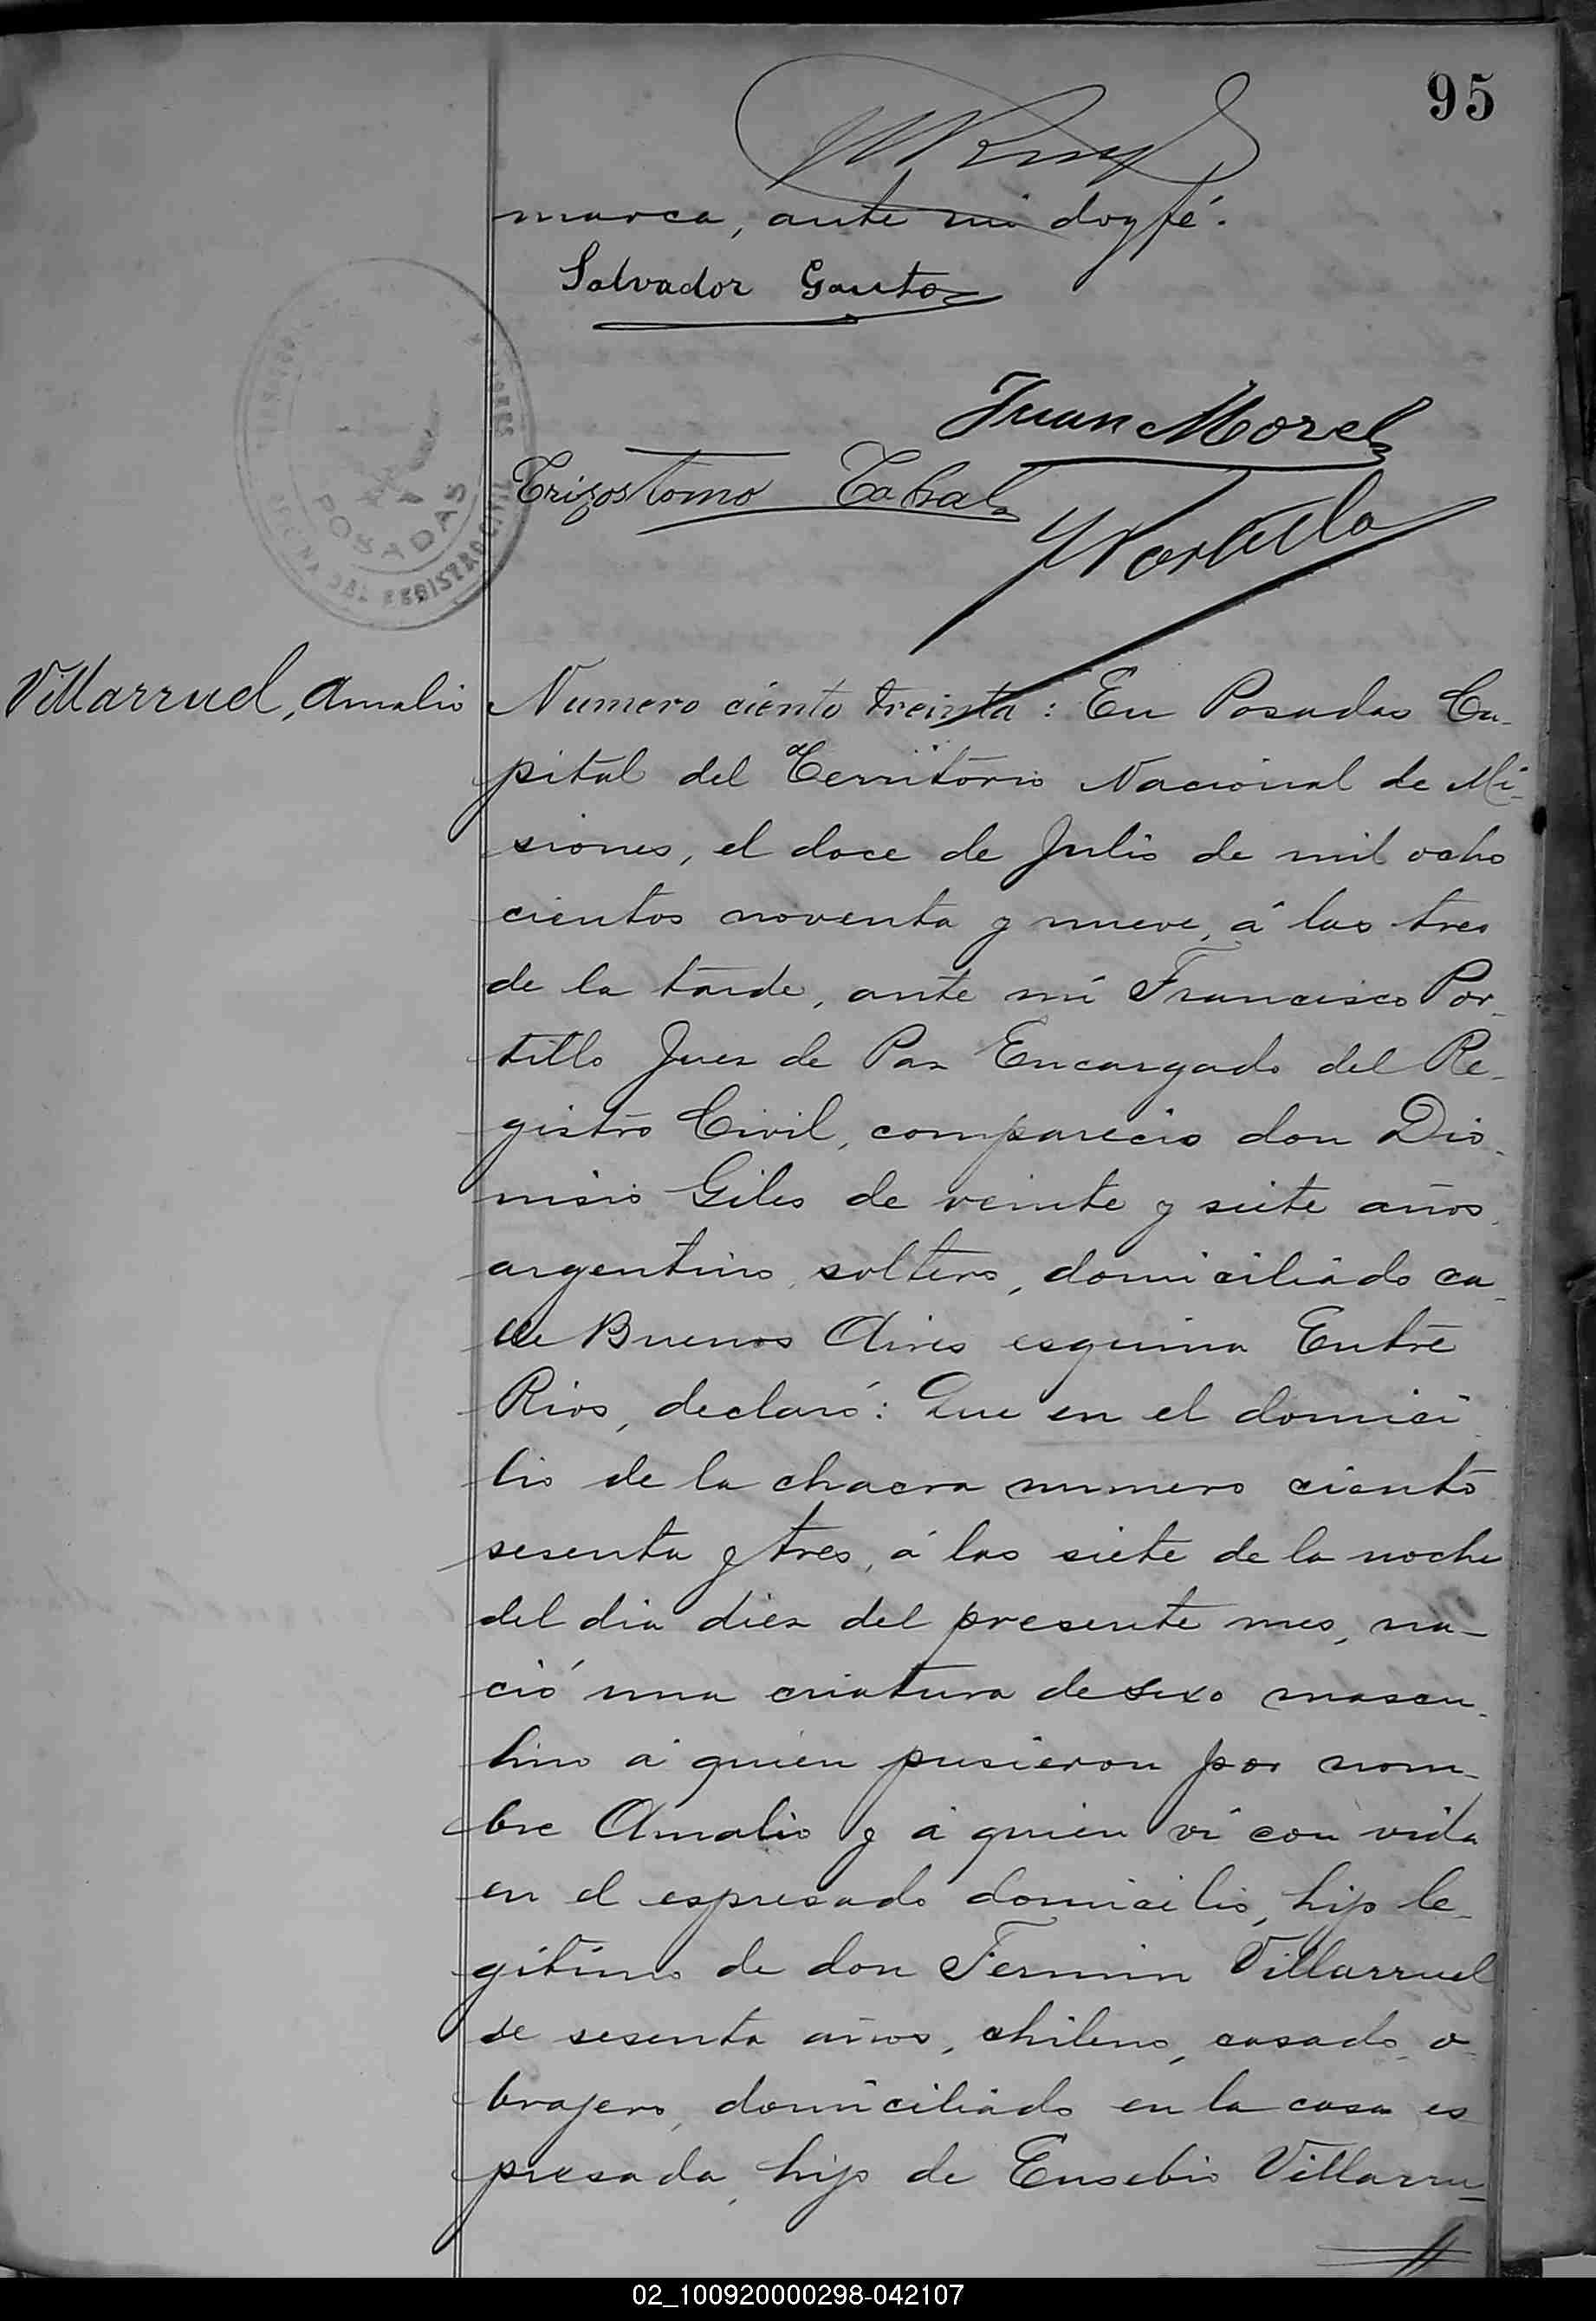 95
marca, ante mi doy fé.
Salvador Gauto
Juan Morel
Crizostomo Cabral
FPortillo
POSADAS
OFICINA DEL REGISTRO CIVIL
Villarruel, Amalio
Numero ciento treinta: En Posadas Ca-
pital del Territorio Nacional de Mi-
siones, el doce de Julio de mil ocho
cientos noventa y nueve, á las tres
de la tarde, ante mi Francisco Por-
tillo Juez de Paz Encargado del Re-
gistro Civil, comparecio don Dio-
nisio Giles de veinte y siete años,
argentino, soltero, domiciliado ca-
lle Buenos Aires esquina Entre
Rios, declaró: Que en el domici
lio de la chacra numero ciento
sesenta y tres, á las siete de la noche
del dia diez del presente mes, na-
ció una criatura de sexo mascu-
lino á quien pusieron por nom-
bre Amalio y á quien vi con vida
en el espresado domicilio, hijo le-
gitimo de don Fermin Villarruel
de sesenta años, chileno, casado, o-
brajero, domiciliado en la casa es
presada, hijo de Eusebio Villarru-
02_100920000298-042107